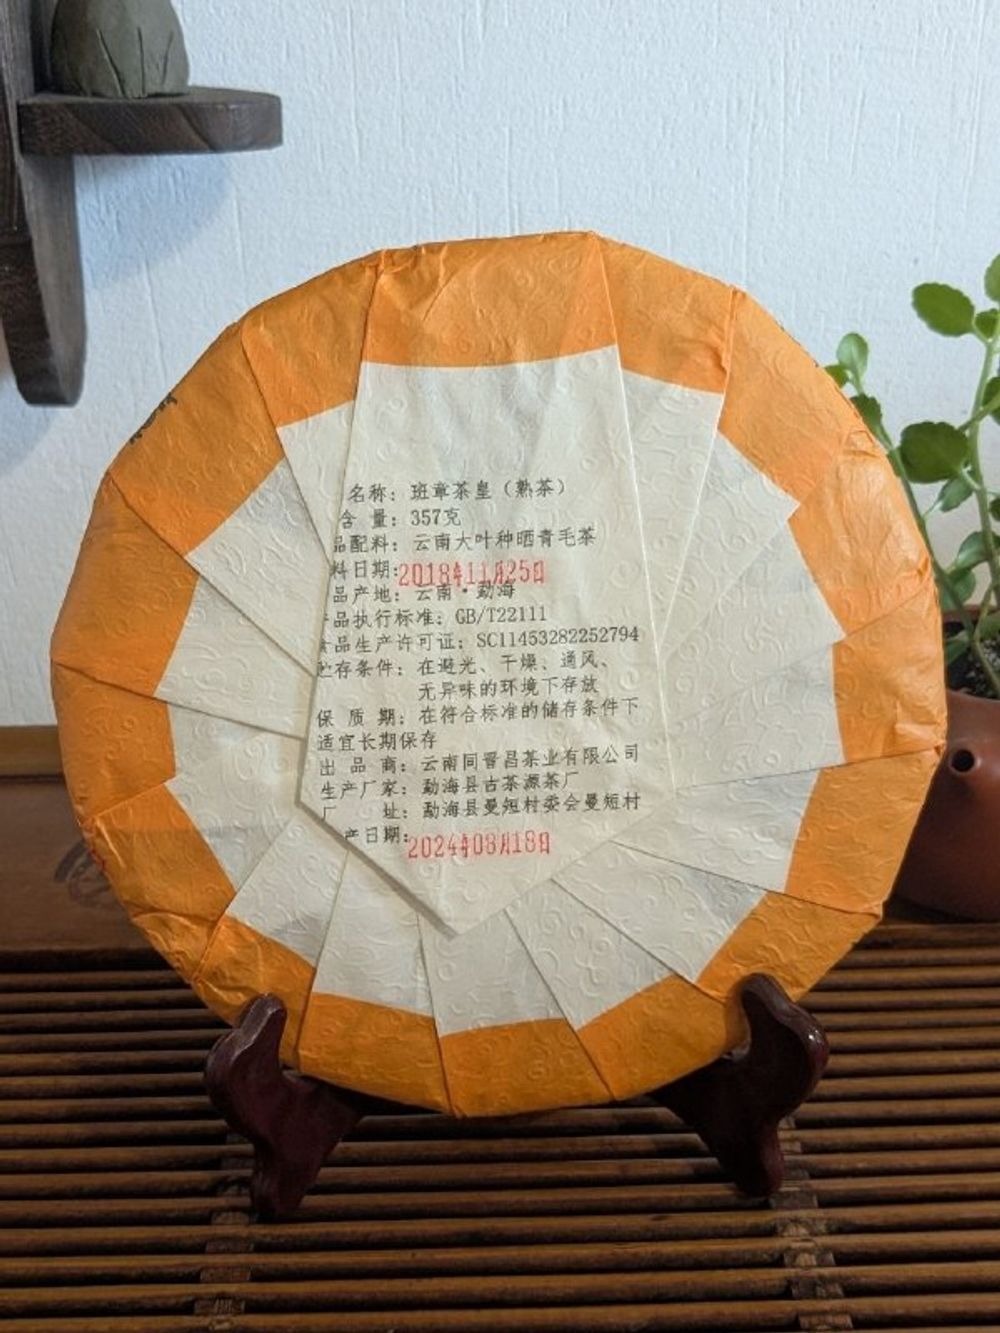 名称：班章茶皇（熟茶）
含 量：357克
品配料：云南大叶种晒青毛茶
料日期：2018年11月25日
品产地：云南·勐海
品执行标准：GB/T22111
品生产许可证：SC11453282252794
贮存条件：在避光、干燥、通风、
无异味的环境下存放
保 质 期：在符合标准的储存条件下
适宜长期保存
出 品 商：云南同晋昌茶业有限公司
生产厂家：勐海县古茶源茶厂
厂 址：勐海县曼短村委会曼短村
产日期：2024年08月18日